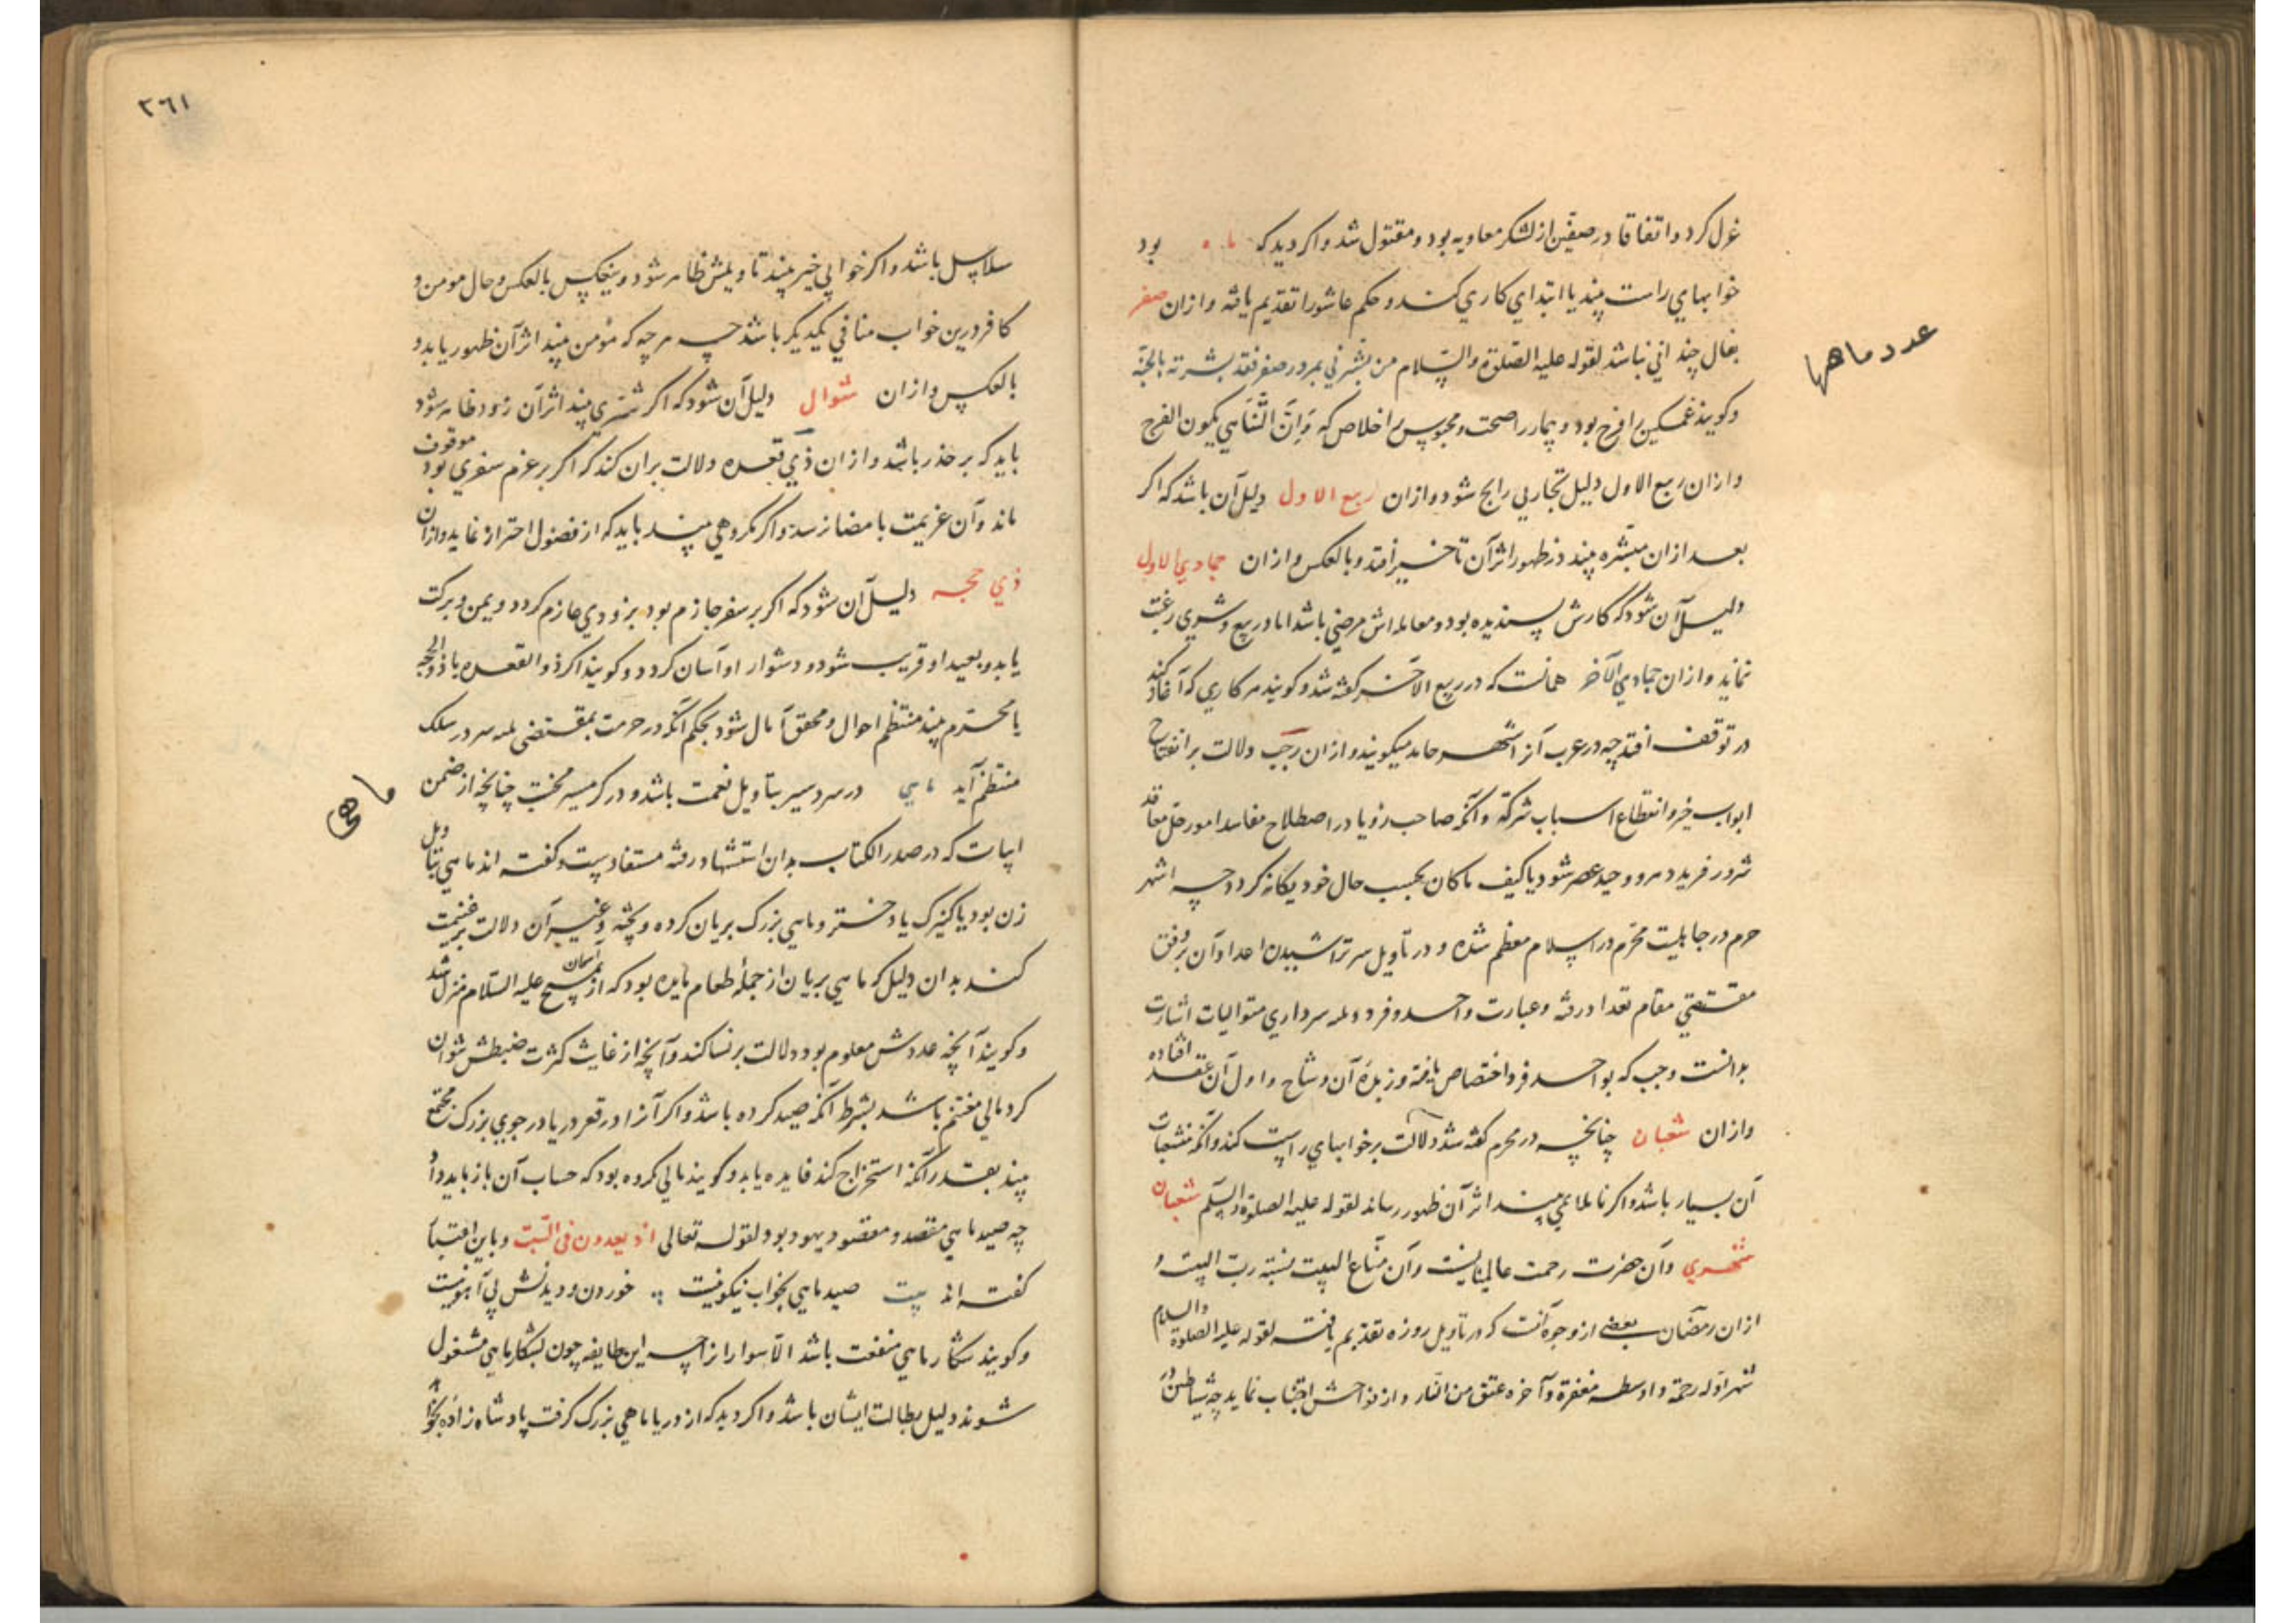 عزل کرد و اتفاقا در صفین از لشکر معاویه بود و مقتول شد و اکر دید که ماه بود
خوابهای راست بیند یا ابتدای کاری کند و حکم عاشورا تقدیم یافته و از ان صفر
بفال چندانی نباشد لقوله علیه الصلوة والسلام من بشرنی بمرور صفر فقد بشرته بالجنة
و کویند غمکین را فرح بود و بیمار را صحت و محبوس را خلاص که وان التناهی یکون الفرج
و از ان ربیع الاول دلیل تجارتی رابح شود و از ان ربیع الاول دلیل آن باشد که اکر
بعد از ان مبشره بیند در ظهور اثر آن تاخیر افتد و بالعکس و از ان جمادی الاول
دلیل آن شود که کارش پسندیده بود و معامله اش مرضی باشد اما در بیع و شری رغبت
نماید و از ان جمادی الآخر همانست که در ربیع الآخر کفته شد و کویند هر کاری که آغاز کند
در توقف افتد چه در عرب آنرا شهر جامد میکویند و از ان رجب دلالت بر انفتاح
ابواب خیر و انقطاع اسباب شر کند و آنکه صاحب رؤیا در اصطلاح مفاسد امور و حل معاقد
شرور فرید دهر و وحید عصر شود یا کیف ما کان بحسب حال خود یکانه کردد چه اشهر
حرم در جاهلیت محترم در اسلام معظم شده و در تاویل سر تراشیدن اعداد آن بر وفق
مقتضی مقام تعداد رفته و عبارت واحد و فرد و ثلثه سرد اری متوالیات اشارت
بدانست رجب که بواحد فرد اختصاص یافته و زبده آن وشاح و اول آن عقد افتاده
و از ان شعبان چنانچه در محرم کفته شد دلالت بر خوابهای راست کند و آنکه منشعبات
آن بسیار باشد و اکر ناملایمی بیند اثر آن ظهور رساند لقوله علیه الصلوة والسلم شعبان
شهری و آن حضرت رحمت عالمیانست و آن مناع البیت نسبته رب البیت و
از ان رمضان بعضی از وجوه آنست که در تاویل روزه تقدیم یافته لقوله علیه الصلوة والسلام
شهر اوله رحمة و اوسطه مغفرة و آخره عتق من النار و از فواحش اجتناب نماید چه شیاطین در
عدد ماهها
٣٦١
سلاسل باشد و اکر خوابی خیر بیند تاویلش ظاهر شود و بینعکس بالعکس و حال مومن و
کافر درین خواب منافی یکدیکر باشد چه هر چه که مؤمن بیند اثر آن ظهور یابد و
بالعکس و از ان شوال دلیل آن شود که اکر شری بیند اثر آن زود ظاهر شود
باید که بر حذر باشد و از ان ذی قعده دلالت بران کند که اکر بر عزم سفری بود موقوف
ماند و آن عزیمت بامضا نرسد و اکر مکروهی بیند باید که از فضول احتراز نماید و از ان
ذی حجه دلیل آن شود که اکر بر سفر جازم بود بزودی عازم کردد و یمن و برکت
یابد و بعید او قریب شود و دشوار او آسان کردد و کویند اکر ذو القعده یا ذو الحجه
یا محرم بیند منتظم احوال و محقق آمال شود بحکم آنکه در حرمت بمقتضی ثلثه سرد در سلک
منتظم آید ماهی در سردسیر بتاویل نعمت باشد و در کرمسیر محنت چنانچه از ضمن
ابیات که در صدر الکتاب بدان استشهاد رفته مستفادست و کفته اند ماهی بتاویل
زن بود یا کنیزک یا دختر و ماهی بزرک بریان کرده و پخته و غیر آن دلالت بر غنیمت
کند بدان دلیل که ماهی بریان از جمله طعام مایده بود که از آسمان بمسیح علیه السلام منزل شد
و کویند آنچه عددش معلوم بود دلالت بر نسا کند و آنچه از غایت کثرت ضبطش نتوان
کرد مالی مغتنم باشد بشرط آنکه صید کرده باشد و اکر آنرا در قعر دریا در جوی بزرک مجتمع
بیند بقدر آنکه استخراج کند فایده یابد و کویند مالی مکروه بود که حساب آن باز باید داد
چه صید ماهی مقصد و مقصود یهود بود لقوله تعالی اذ یعدون فی السبت و باین اقتباس
کفته اند بیت صید ماهی بخواب نیکو نیست خوردن و دیدنش بی آهو نیست
و کویند شکار ماهی منفعت باشد الا سوارانرا چه این طایفه چون بشکار ماهی مشغول
شوند دلیل بطالت ایشان باشد و اکر دید که از دریا ماهی بزرک کرفت پادشاه زاده بخواب
ماهی